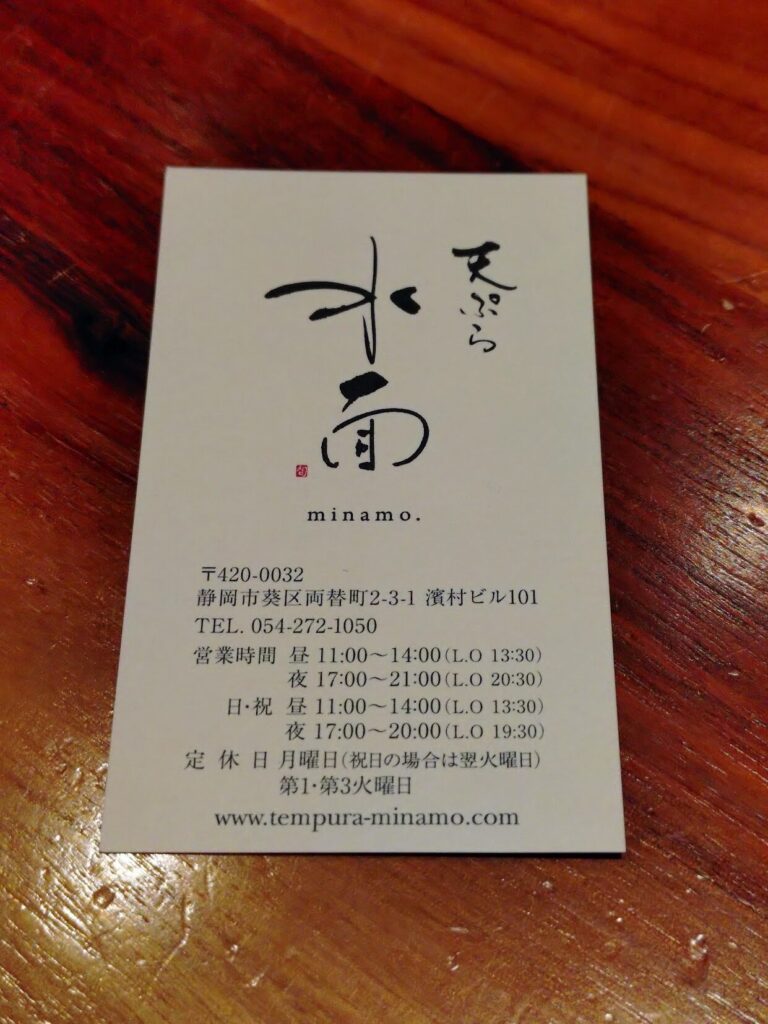 天ぷら
水面
minamo.
〒420-0032
静岡市葵区両替町2-3-1 濱村ビル101
TEL. 054-272-1050
営業時間 昼 11:00〜14:00(L.O 13:30)
夜 17:00〜21:00(L.O 20:30)
日・祝 昼 11:00〜14:00(L.O 13:30)
夜 17:00〜20:00(L.O 19:30)
定 休 日 月曜日(祝日の場合は翌火曜日)
第1・第3火曜日
www.tempura-minamo.com